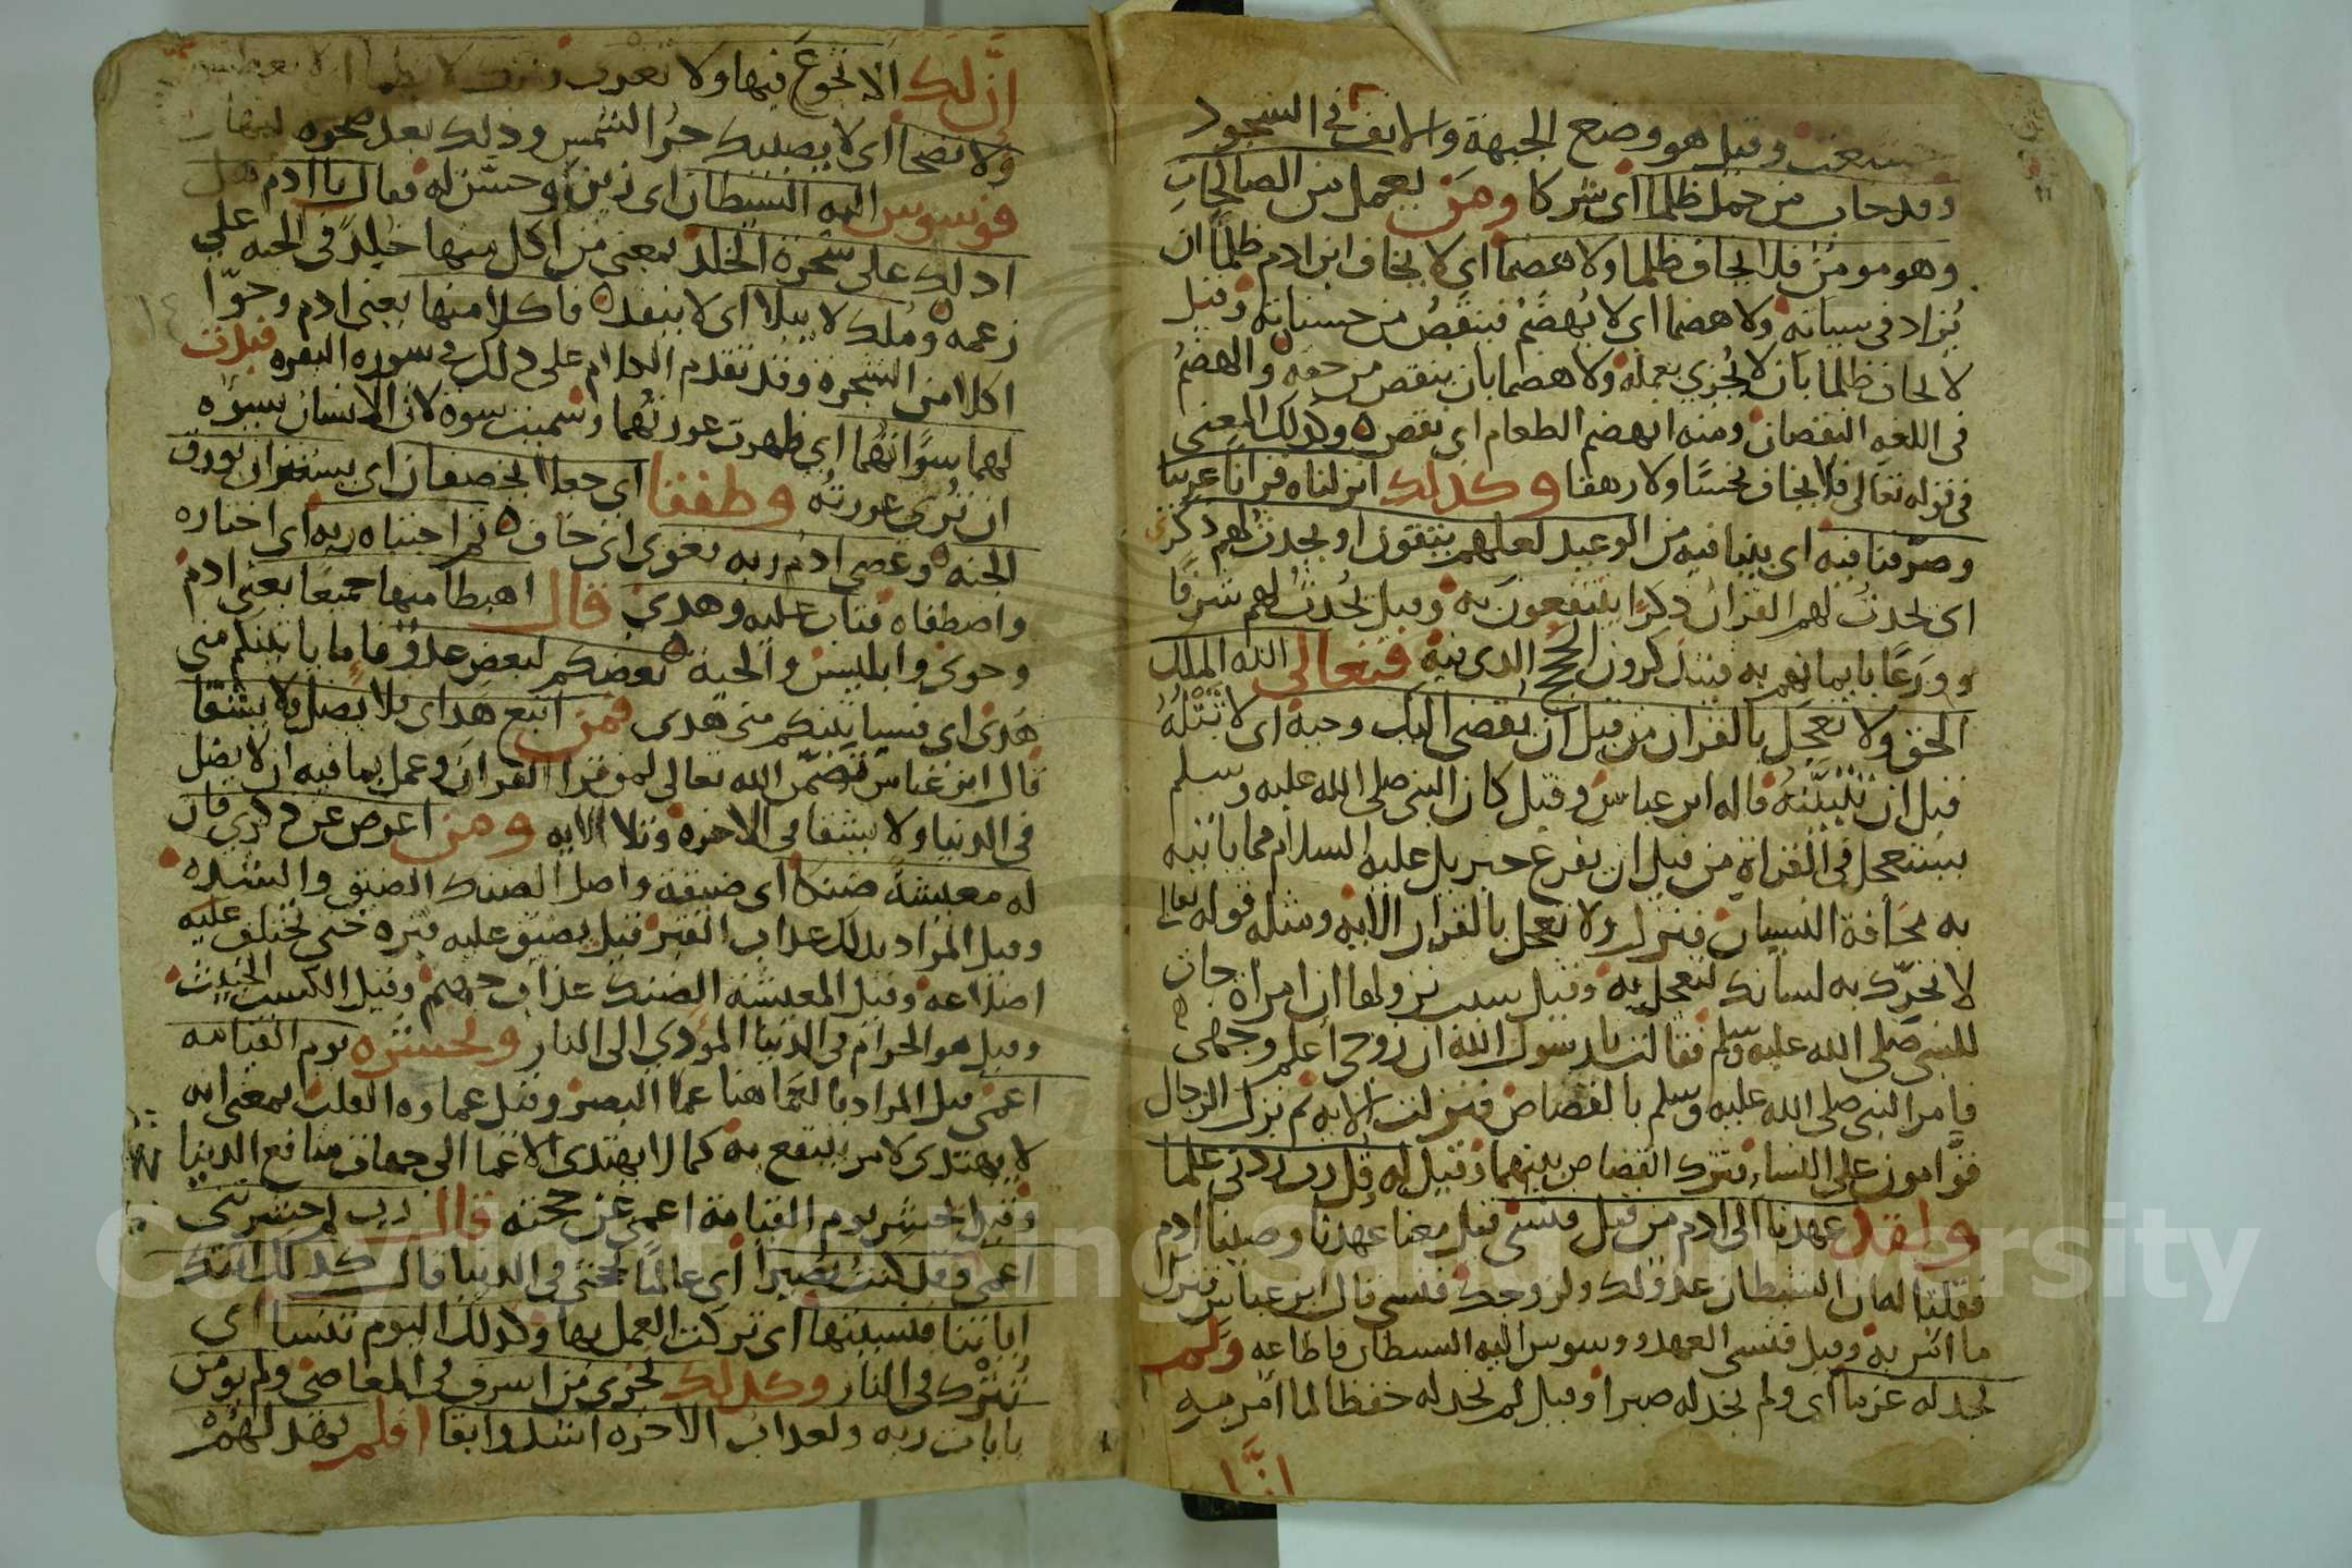 وقيل هو وضع الجبهة والانف في السجود
وقد خاب من حمل ظلما اى شركا ومن يعمل من الصالحات
وهو مومن فلا يخاف ظلما ولا هضما اى لا يخاف ابن ادم ظلما ان
يُزاد في سياته ولا هضما اى لا يُهضَم فينقصُ من حسناته وقيل
لا يخاف ظلما بان لا يُجزي بعمله ولا هضما بان ينقص من حقه والهضمُ
في اللغه النقصان ومنه انهضم الطعام اى نقص ه وكذلك المعنى
في قوله تعالى فلا يخاف بخسًا ولا رهقا وكذلك انزلناه قرانا عربيا
وصرّفنا فيه اى بينا فيه من الوعيد لعلهم يتقون او يحدث لهم ذكرى
اى يحدث لهم القران ذكرًا ينتفعون به وقيل يُحدث لهم شرفًا
وورَعًا بايمانهم به فيتذكرون الحُجج الذى فيه فتعالى الله الملك
الحق ولا تعجل بالقران من قبل ان يقضى اليك وحيه اى لا تتلهُ
قبل ان تتبيّنهُ قاله ابن عباس وقيل كان النبي صلى الله عليه وسلم
يستعجل في القراة من قبل ان يفرغ جبريل عليه السلام مما ياتيه
به مخافة النسيان فنزل ولا تعجل بالقران الايه ومثله قوله تعالى
لا تحرّك به لسانك لتعجل به وقيل سبب نزولها ان امراة جات
للنبي صلى الله عليه وسلم فقالت يا رسول الله ان زوجى وجهى
فامر النبي صلى الله عليه وسلم بالقصاص فنزلت الايه ثم نزل الرجال
قوّامون على النساء فترك القصاص بينهما وقيل له قل رب زدنى علما
ولقد عهدنا الى ادم من قبل فنسى قيل معنا عهدنا وصينا ادم
فقلنا له ان الشيطان عدو لك ولزوجك فنسى قال ابن عباس ترك
ما امر به وقيل فنسى العهد ووسوس اليه الشيطان فاطاعه ولم
نجد له عزما اى ولم نجد له صبرا وقيل لم نجد له حفظا لما امر به
انَّ
انَّ لك الا تجوع فيها ولا تعرى
ولا تضحا اى لا يصيبك حرُّ الشمس وذلك بعد
فوسوس اليه الشيطان اى زين وحسّن له فقال يا ادم هل
ادلك على شجرة الخلد بمعنى من اكل منها خلِدَ في الجنه على
زعمه ومُلك لا يبلا اى لا ينفد ه فاكلا منها يعنى ادم وحوّا
اكلا من الشجره وقد تقدم الكلام على ذلك في سورة البقره فبدت
لهما سوَاتهُما اى ظهرت عورتُهما وسُميت سوة لان الانسان يسوُه
ان تُرى عورتُه وطفقا اى جعلا يخصفان اى يستتران بورق
الجنه ه وعصى ادم ربه فغوى اى خاب ه ثم اجتباه ربه اى اختاره
واصطفاه فتاب عليه وهدى قال اهبطا منها جميعًا يعنى ادم
وحوى وابليس والحية ه بعضكم لبعض عدو فاما ياتينكم منى
هُدى اى فسياتينكم منى هدى فمن اتبع هداى فلا يضل ولا يشقا
قال ابن عباس تضمّن الله تعالى لمن قرا القران وعمل بما فيه ان لا يضل
في الدنيا ولا يشقا في الاخرة وتلا الايه ومن اعرض عن ذكرى فان
له معيشةً ضنكا اى ضيقة واصل الضنك الضيق والشده
وقيل المراد بذلك عذاب القبر قيل يضيق عليه قبره حتى تختلف عليه
اضلاعه وقيل المعيشه الضنك عذاب جهنم وقيل الكسب الخبيث
وقيل هو الحرام في الدنيا المؤدى الى النار ونحشره يوم القيامه
اعمى قيل المراد بالعَما هنا عما البصر وقيل عماوه القلب بمعنى انه
لا يهتدى لامر ينتفع به كما لا يهتدى الاعما الى جهات منافع الدنيا
وقيل يُحشر يوم القيامة اعمى عن حجته قال رب لم حشرتنى
اعمى وقد كنت بصيرا اى عالمًا بحجتى في الدنيا قال كذلك اتتك
اياتنا فنسيتها اى تركت العمل بها وكذلك اليوم تنسا اى
تُترك في النار وكذلك نجزى من اسرف في المعاصى ولم يومن
بايات ربه ولعذاب الاخره اشد وابقا افلم يَهد لهُمْ
Copyright © King Saud University